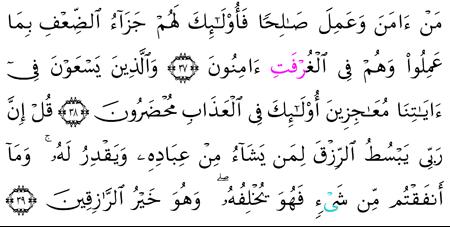 مَنْ ءَامَنَ وَعَمِلَ صَـٰلِحًا فَأُو۟لَـٰٓئِكَ لَهُمْ جَزَآءُ ٱلضِّعْفِ بِمَا
عَمِلُوا۟ وَهُمْ فِى ٱلْغُرُفَـٰتِ ءَامِنُونَ ﴿٣٧﴾ وَٱلَّذِينَ يَسْعَوْنَ فِىٓ
ءَايَـٰتِنَا مُعَـٰجِزِينَ أُو۟لَـٰٓئِكَ فِى ٱلْعَذَابِ مُحْضَرُونَ ﴿٣٨﴾ قُلْ إِنَّ
رَبِّى يَبْسُطُ ٱلرِّزْقَ لِمَن يَشَآءُ مِنْ عِبَادِهِۦ وَيَقْدِرُ لَهُۥ ۚ وَمَآ
أَنفَقْتُم مِّن شَىْءٍ فَهُوَ يُخْلِفُهُۥ ۖ وَهُوَ خَيْرُ ٱلرَّٰزِقِينَ ﴿٣٩﴾